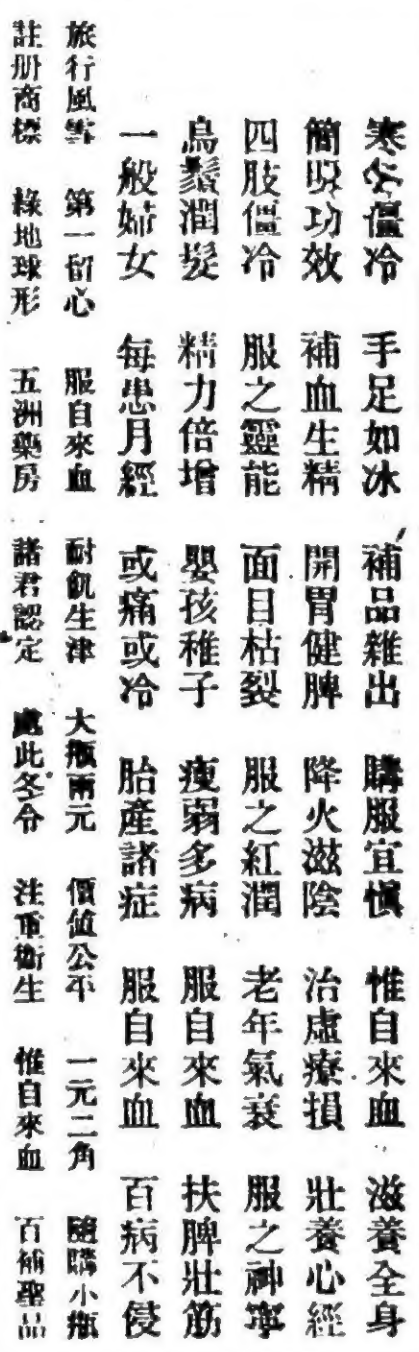 寒冬僵冷 手足如冰 補品雜出 購服宜慎 惟自來血 滋養全身
簡明功效 補血生精 開胃健脾 降火滋陰 治虛療損 壯養心經
四肢僵冷 服之靈能 面目枯裂 服之紅潤 老年氣衰 服之神寧
烏鬚潤髮 精力倍增 嬰孩稚子 瘦弱多病 服自來血 扶脾壯筋
一般婦女 每患月經 或痛或冷 胎產諸症 服自來血 百病不侵
旅行風雪 第一留心 服自來血 耐飢生津 大瓶兩元 價值公平 一元二角 隨購小瓶
註册商標 綠地球形 五洲藥房 諸君認定 處此冬令 注重衛生 惟自來血 百補聖品